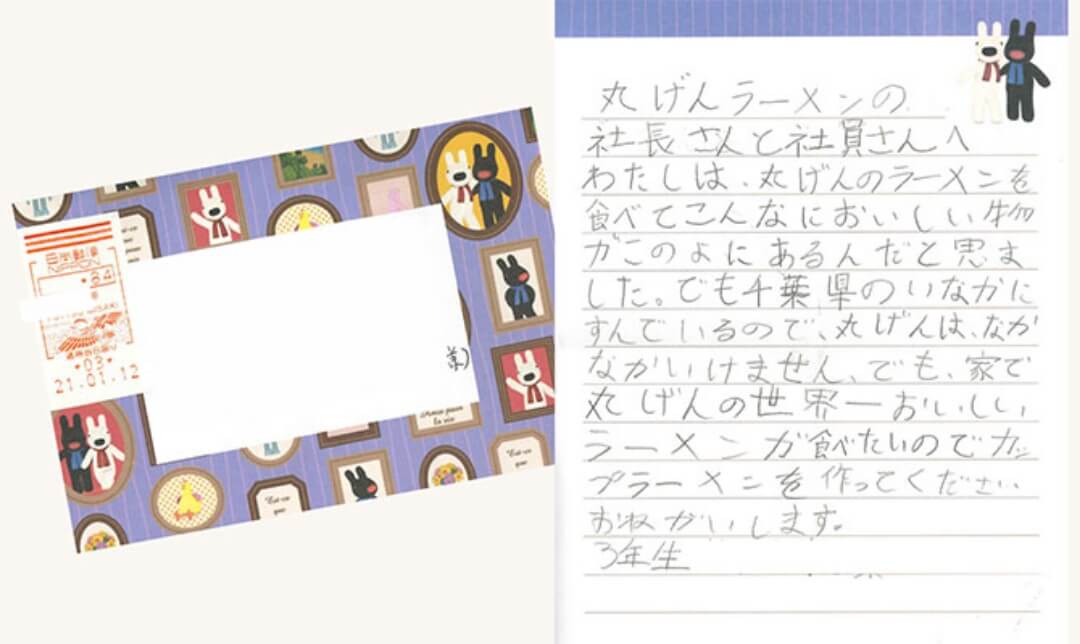 日本郵便
NIPPON
·84
·03·
21.01.12
葉)
Est-ce que
Est-ce que
丸げんラーメンの
社長さんと社員さんへ
わたしは、丸げんのラーメンを
食べてこんなにおいしい物
がこのよにあるんだと思ま
した。でも千葉県のいなかに
すんでいるので、丸げんは、なか
なかいけません、でも、家で
丸げんの世界一おいしい
ラーメンが食べたいのでカッ
プラーメンを作ってください
おねがいします。
3年生